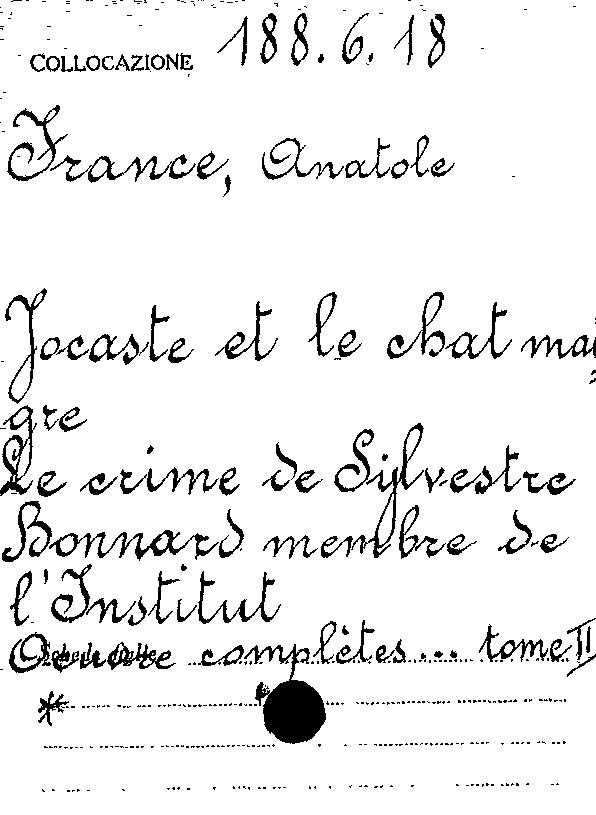 COLLOCAZIONE 188.6.18
France, Anatole
Jocaste et le chat mai=
gre
Le crime de Sylvestre
Bonnard membre de
l'Institut
Oeuvre complètes... tome II
*